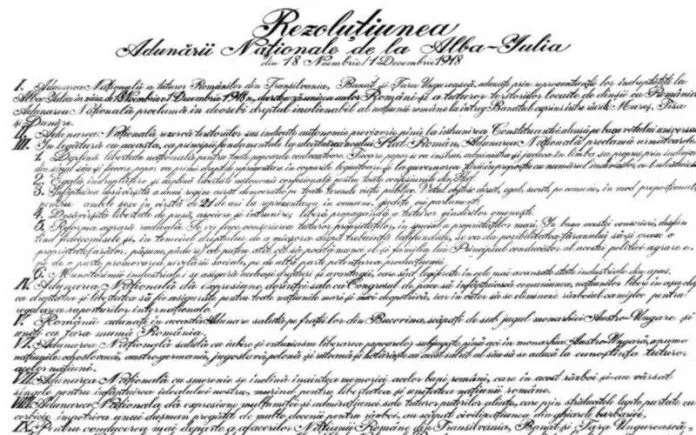 Rezoluțiunea
Adunării Naționale de la Alba-Iulia
din 18 Noembrie/1 Decembrie 1918
I. Adunarea Națională a tuturor Românilor din Transilvania, Banat și Țara Ungurească, adunați prin reprezentanții lor îndreptățiți la
Alba-Iulia în ziua de 18 Noembrie/1 Decembrie 1918, decretează unirea acelor Români și a tuturor teritoriilor locuite de dânșii cu România.
Adunarea Națională proclamă îndeosebi dreptul inalienabil al națiunii române la întreg Banatul cuprins între râurile Mureș, Tisa
Dunăre.
II. Adunarea Națională rezervă teritoriilor sus indicate autonomie provizorie până la întrunirea Constituantei aleasă pe baza votului universal
III. În legătură cu aceasta, ca principii fundamentale la alcătuirea noului Stat Român, Adunarea Națională proclamă următoarele:
1. Deplină libertate națională pentru toate popoarele conlocuitoare. Fiecare popor se va instrui, administra și judeca în limba sa proprie prin indivizi
din sânul său și fiecare popor va primi drept de reprezentare în corpurile legiuitoare și la guvernarea țării în proporție cu numărul indivizilor
2. Egală îndreptățire și deplină libertate autonomă confesională pentru toate confesiunile din Stat.
3. Înfăptuirea desăvârșită a unui regim curat democratic pe toate terenele vieții publice. Votul obștesc, direct, egal, secret, pe comune, în mod proporțional,
pentru ambele sexe, în vârstă de 21 de ani la reprezentarea în comune, județe ori parlament.
4. Desăvârșită libertate de presă, asociere și întrunire; liberă propagandă a tuturor gândurilor omenești.
5. Reforma agrară radicală. Se va face conscrierea tuturor proprietăților, în special a proprietăților mari. În baza acestei conscrieri, desființând
fideicomisele și, în temeiul dreptului de a micșora după trebuință latifundiile, se va da posibilitatea țăranului să-și creeze o
proprietate (arător, pășune, pădure) cel puțin atât cât să poată munci el și familia lui. Principiul conducător al acestei politici agrare e
pe de o parte promovarea nivelării sociale, pe de altă parte potențarea producțiunii.
6. Muncitorimii industriale i se asigură aceleași drepturi și avantagii, care sunt legiferate în cele mai avansate state industriale din apus.
IV. Adunarea Națională dă expresiune dorinței sale ca Congresul de pace să înfăptuiască comuniunea națiunilor libere în așa chip
ca dreptatea și libertatea să fie asigurate pentru toate națiunile mari și mici deopotrivă, iar în viitor să se elimine războiul ca mijloc pentru
regularea raporturilor internaționale.
V. Românii adunați în această Adunare salută pe frații lor din Bucovina, scăpați de sub jugul monarhiei Austro-Ungare și
uniți cu țara mamă România.
VI. Adunarea Națională salută cu iubire și entuziasm liberarea popoarelor subjugate până aci în monarhia Austro-Ungară, anume
națiunile: cehoslovacă, austrogermană, jugoslavă, polonă și ruteană și hotărăște ca acest salut al său să se aducă la cunoștința tuturor
acelor națiuni.
VII. Adunarea Națională cu smerenie se închină înaintea memoriei acelor bravi români, care în acest război și-au vărsat
sângele pentru înfăptuirea idealului nostru, murind pentru libertatea și unitatea națiunii române.
VIII. Adunarea Națională dă expresiune mulțumitei și admirațiunei sale tuturor puterilor aliate, care prin strălucitele lupte purtate cu
cerbicie împotriva unui dușman pregătit de multe decenii pentru război, au scăpat civilizațiunea din ghiarele barbariei.
IX. Pentru conducerea mai departe a afacerilor Națiunii Române din Transilvania, Banat și Țara Ungurească,